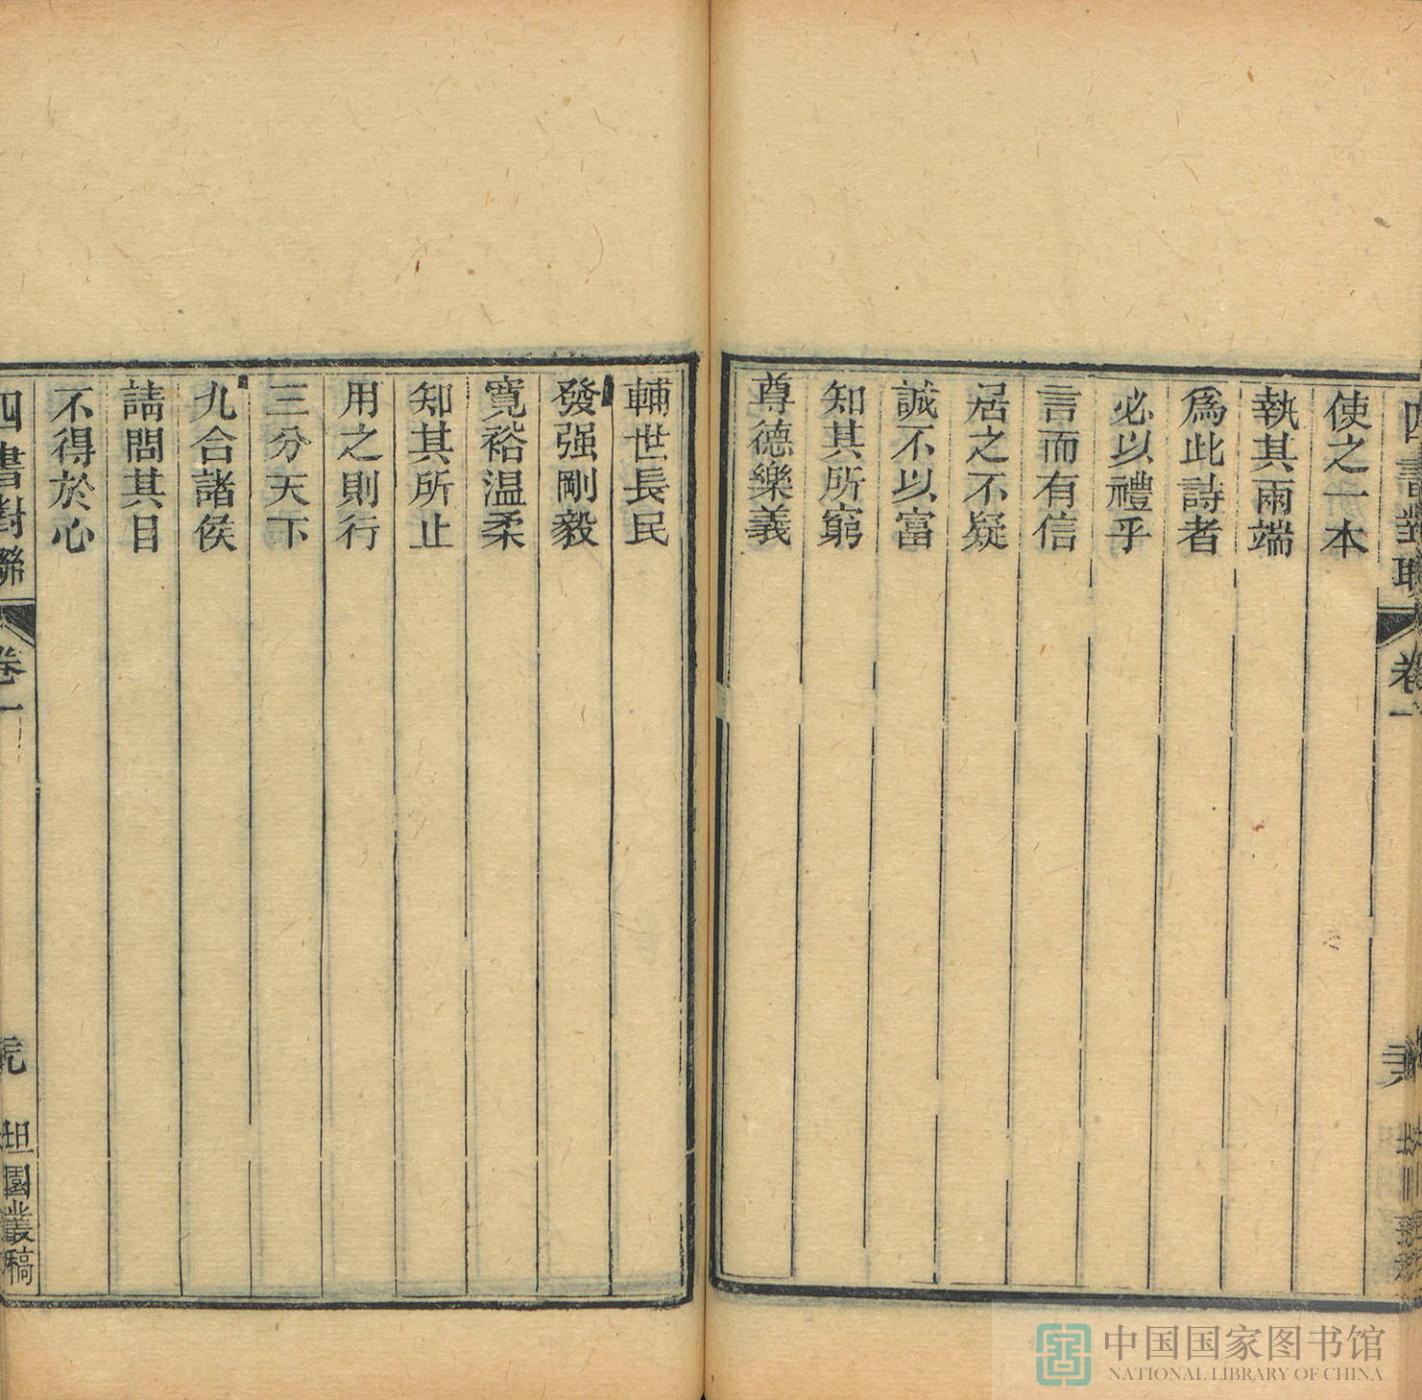 四書對聯 卷一
使之一本
執其兩端
爲此詩者
必以禮乎
言而有信
居之不疑
誠不以富
知其所窮
尊德樂義
輔世長民
發强剛毅
寛裕温柔
知其所止
用之則行
三分天下
九合諸侯
請問其目
不得於心
四書對聯 卷一 坦園叢稿
中国国家图书馆
NATIONAL LIBRARY OF CHINA